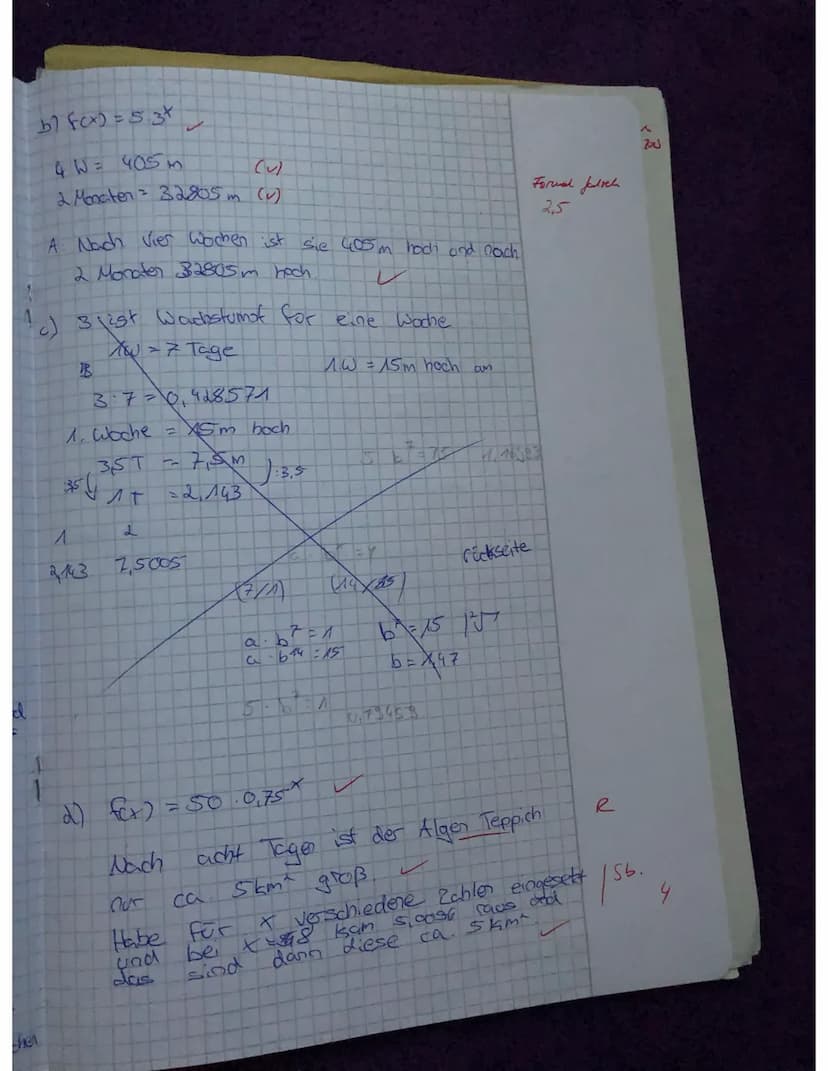 b) f(x) = 5 3^x ✓
4 W = 405 m (✓)
2 Monaten = 32805 m (✓)
Formel falsch
2,5
A: Nach vier Wochen ist sie 405m hoch und nach
2 Monaten 32805m hoch ✓
c) 3 ist Wachstumsf für eine Woche
1W = 7 Tage
1W = 15m hoch an
3:7 = 0,428571
1. Woche = 15m hoch
3,5T = 7,5m
):3,5
3,5
1T = 2,143
5 b^7 = 75
1 2
2,143 7,5005
rückseite
(7/1) (14/15)
a · b^7 = 1
b^7 = 15
a · b^14 = 15
b = 1,47
5 · b^7 = 1
0,79459
d) f(x) = 50 · 0,75^x ✓
Nach acht Tagen ist der Algen Teppich
R
nur ca 5km² groß. ✓
Habe für x verschiedene Zahlen eingesetzt
/ Sb.
4
und bei x = 8 kam 5,0056 raus und
das sind dann diese ca. 5km² ✓